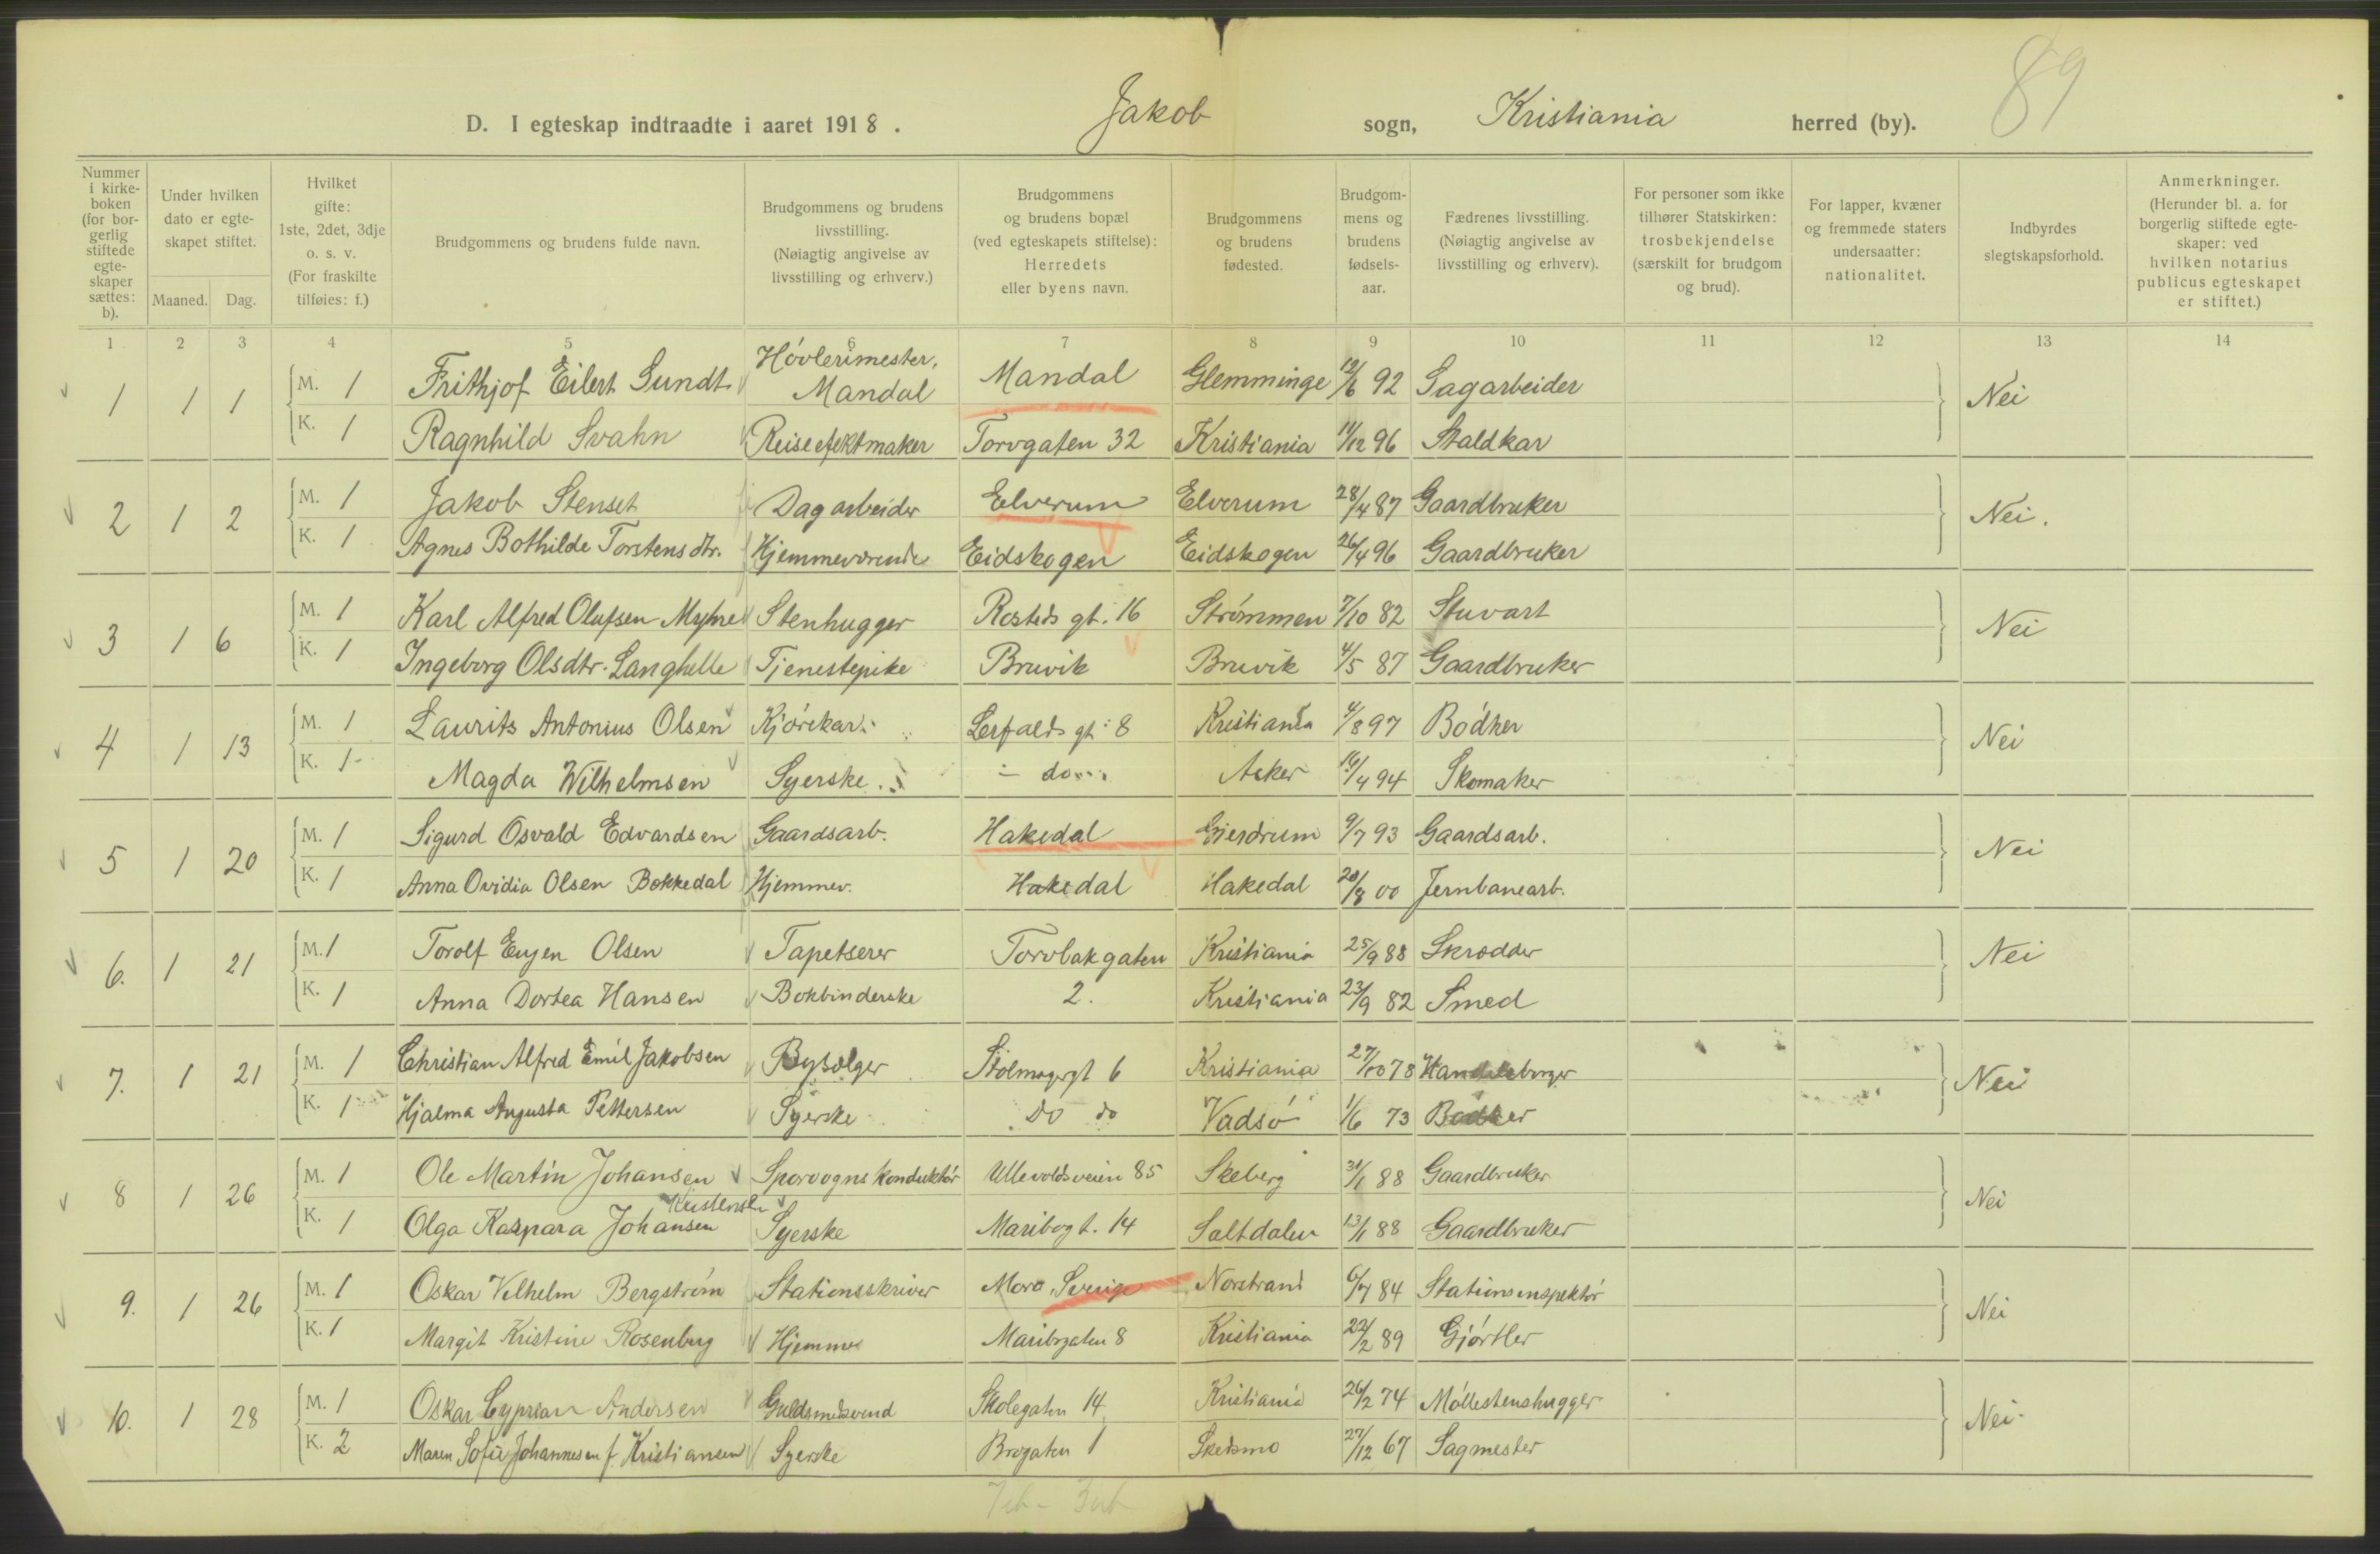 89
D. I egteskap indtraadte i aaret 1918. Jakob sogn, Kristiania herred (by).
Nummer i kirkeboken (for borgerlig stiftede egteskaper sættes: b).
Under hvilken dato er egteskapet stiftet.
Maaned. Dag.
Hvilket gifte: 1ste, 2det, 3dje o. s. v. (For fraskilte tilføies: f.)
Brudgommens og brudens fulde navn.
Brudgommens og brudens livsstilling. (Nøiagtig angivelse av livsstilling og erhverv.)
Brudgommens og brudens bopæl (ved egteskapets stiftelse): Herredets eller byens navn.
Brudgommens og brudens fødested.
Brudgommens og brudens fødselsaar.
Fædrenes livsstilling. (Nøiagtig angivelse av livsstilling og erhverv).
For personer som ikke tilhører Statskirken: trosbekjendelse (særskilt for brudgom og brud).
For lapper, kvæner og fremmede staters undersaatter: nationalitet.
Indbyrdes slegtskapsforhold.
Anmerkninger. (Herunder bl. a. for borgerlig stiftede egteskaper: ved hvilken notarius publicus egteskapet er stiftet.)
1 2 3 4 5 6 7 8 9 10 11 12 13 14
1 1 1 M. 1 Frithjof Eilert Sundt Høvlerimester, Mandal Mandal Glemminge 12/6 92 Sagarbeider Nei
K. 1 Ragnhild Svahn Reiseefektmaker Torvgaten 32 Kristiania 14/12 96 Staldkar
2 1 2 M. 1 Jakob Stenset Dagarbeider Elverum Elverum 28/4 87 Gaardbruker Nei.
K. 1 Agnes Bothilde Torstensdtr. Hjemmeværende Eidskogen Eidskogen 26/4 96 Gaardbruker
3 1 6 M. 1 Karl Alfred Olufsen Myhre Stenhugger Rosteds gt. 16 Strømmen 7/10 82 Stuvart Nei
K. 1 Ingeborg Olsdtr. Langhelle Tjenestepike Bruvik Bruvik 4/5 87 Gaardbruker
4 1 13 M. 1 Laurits Antonius Olsen Kjørekar. Lerfalds gt. 8 Kristiania 4/8 97 Bødker Nei
K. 1 Magda Wilhelmsen Syerske. - do - Asker 16/4 94 Skomaker
5 1 20 M. 1 Sigurd Osvald Edvardsen Gaardsarb. Hakedal Gjerdrum 9/7 93 Gaardsarb. Nei
K. 1 Anna Ovidia Olsen Bokkedal Hjemmev. Hakedal Hakedal 20/8 00 Jernbanearb.
6. 1 21 M. 1 Torolf Eugen Olsen Tapetserer Torvbakgaten Kristiania 25/9 88 Skrædder Nei
K. 1 Anna Dortea Hansen Bokbinderske 2. Kristiania 23/9 82 Smed
7. 1 21 M. 1 Christian Alfred Emil Jakobsen Bysælger Stolmagergt 6 Kristiania 27/10 78 Handelsborger Nei
K. 1 Hjalma Augusta Pettersen Syerske Do do Vadsø 1/6 73 Bødker
8 1 26 M. 1 Ole Martin Johansen Sporvognskonduktør Ullevoldsveien 85 Skeberg 31/1 88 Gaardbruker Nei
Kristensen
K. 1 Olga Kaspara Johansen Syerske Maribogt. 14 Saltdalen 13/1 88 Gaardbruker
9. 1 26 M. 1 Oskar Vilhelm Bergstrøm Stationsskriver Mora Sverige Norstrand 6/7 84 Stationsinspektør Nei
K. 1 Margit Kristine Rosenberg Hjemmev Maribogaten 8 Kristiania 22/2 89 Gjørtler
10. 1 28 M. 1 Oskar Cyprian Andersen Guldsmedsvend Skolegaten 14 Kristiania 26/2 74 Møllestenshugger Nei.
K. 2 Maren Sofie Johannesen f. Kristiansen Syerske Brogaten 1 Skedsmo 27/12 67 Sagmester